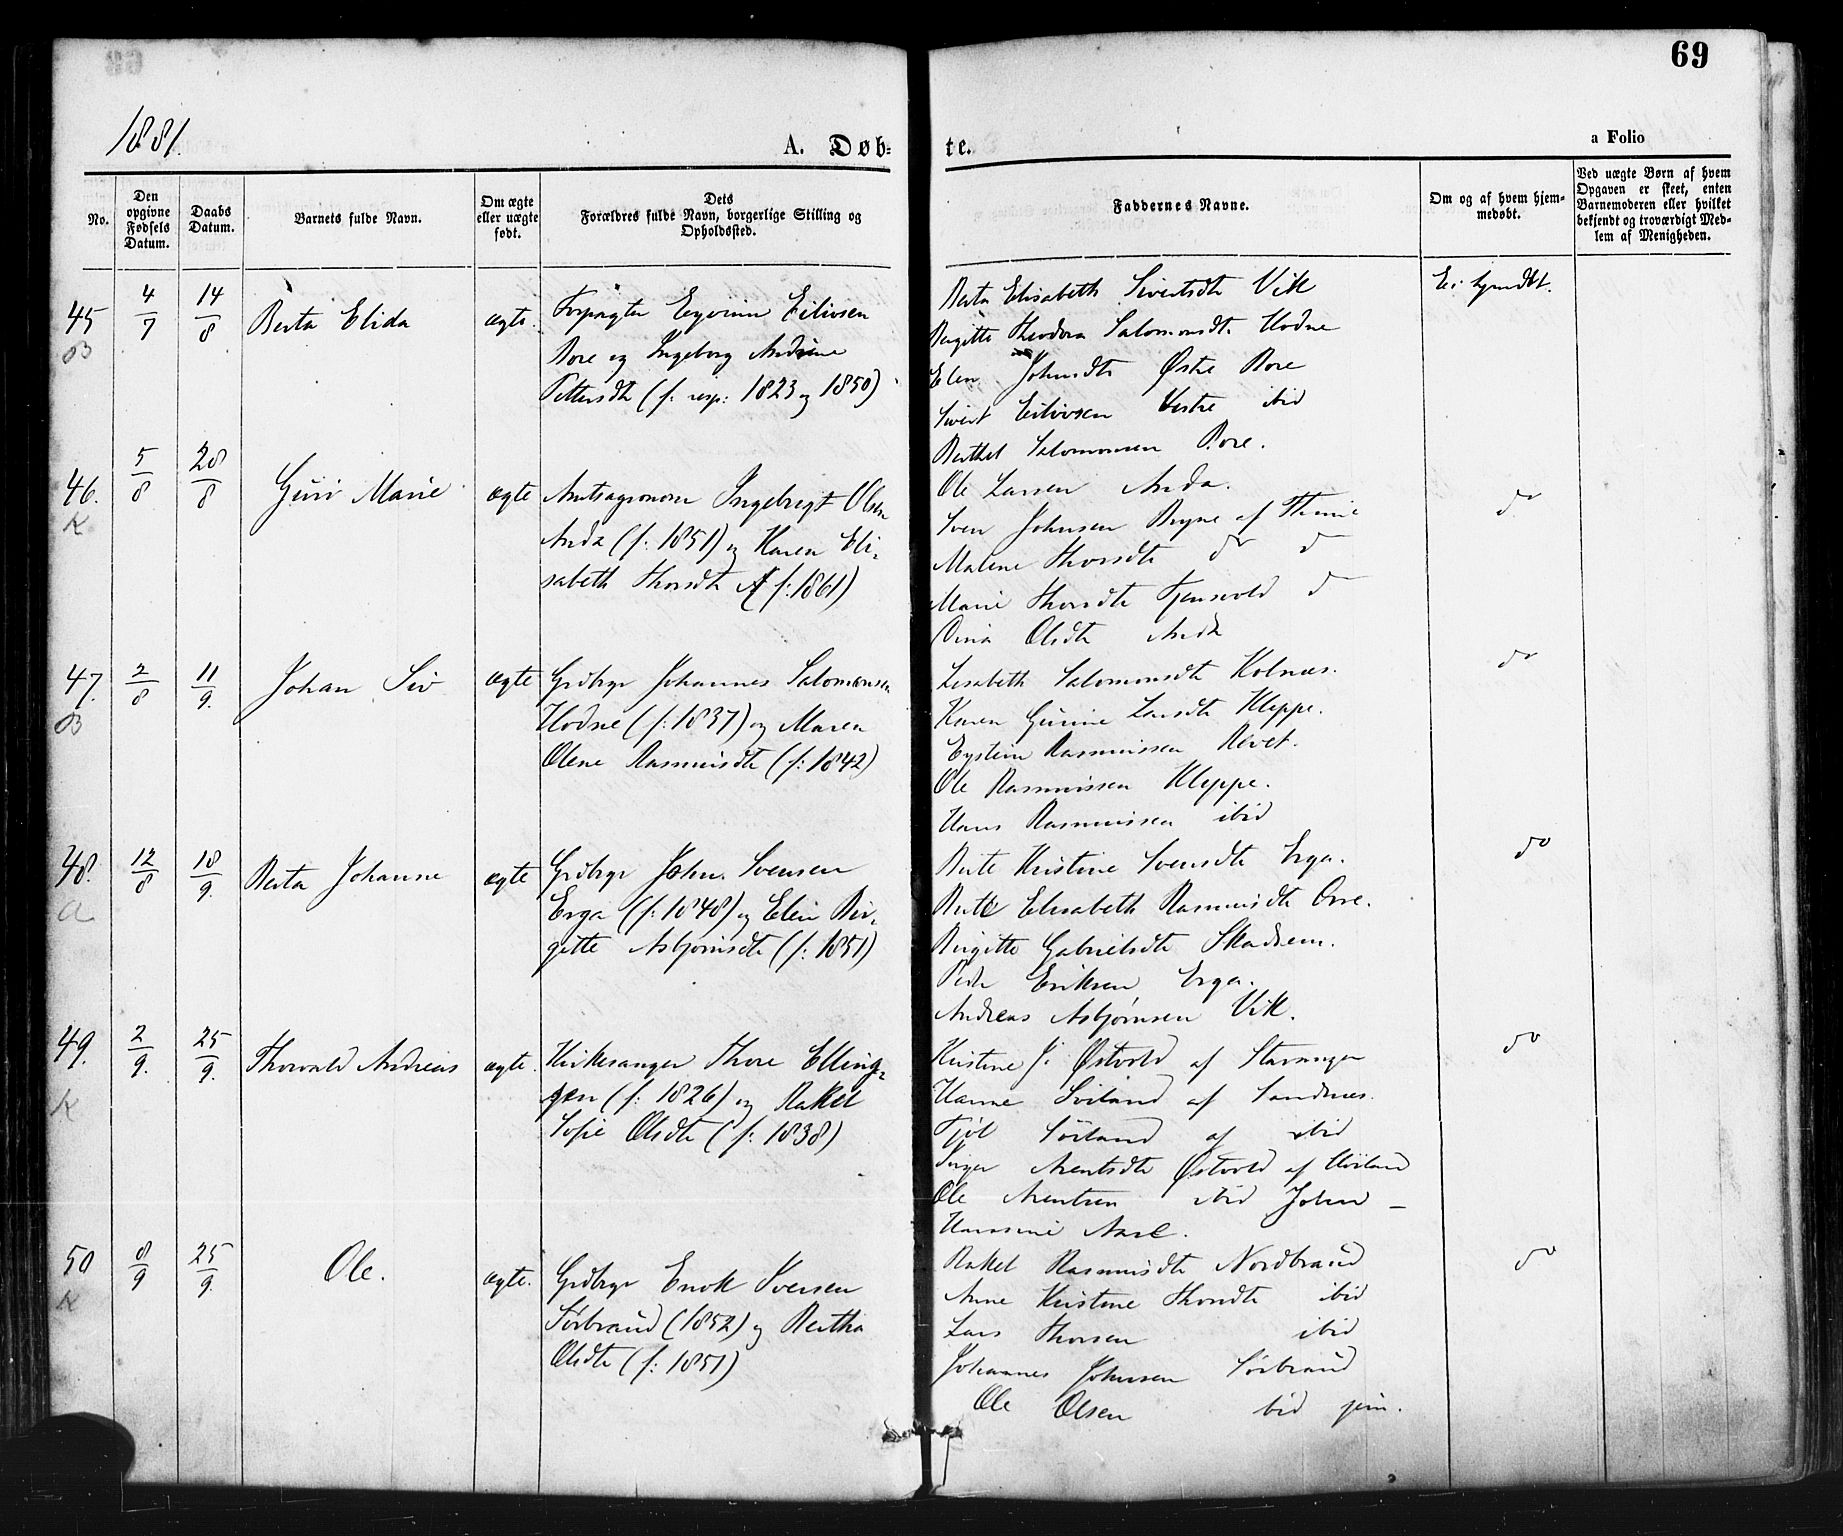 69
1881.
A. Døb-
te.
a Folio
No.
Den opgivne Fødsels Datum.
Daabs Datum.
Barnets fulde Navn.
Om ægte eller uægte født.
Dets Forældres fulde Navn, borgerlige Stilling og Opholdssted.
Faddernes Navne.
Om og af hvem hjem-
medøbt.
Ved uægte Børn af hvem
Opgaven er skeet, enten
Barnemoderen eller hvilket
bekjendt og troværdigt Med-
lem af Menigheden.
45
B
4/7
14/8
Berta Elida
ægte.
Forpagter Eivind Eilivsen
Bore og Ingeborg Andrine
Pettersdtr (f: resp: 1823 og 1850)
Berta Elisabeth Sivertsdtr Vik
Birgitte Theodora Salomonsdtr. Hodne
Elen Johnsdtr Østre Bore
Sivert Eilivsen Vestre ibid
Berthel Salomonsen Bore.
Ei hjemdbt.
46.
K
5/8
28/8
Guri Marie
ægte
Amtsagronom Ingebregt Olsen
Anda (f: 1851) og Karen Eli-
sabeth Thorsdtr (f: 1861)
Ole Larsen Anda.
Sven Johnsen Bryne af Thime
Malene Thorsdtr do do
Marie Thorsdtr Tjensvold do
Olsdtr Anda
do
47.
B
2/8
11/9.
Johan Siv
ægte
Grdbrgr Johannes Salomonsen
Hodne (f: 1837) og Maren
Olene Rasmusdtr (f: 1842)
Lisabeth Salomonsdtr Kolnes.
Karen Gurine Larsdtr Kleppe.
Eystein Rasmussen Revet.
Ole Rasmussen Kleppe.
Hans Rasmussen ibid
do
48.
a
12/8
18/9.
Berta Johanne
ægte
Grdbrgr John Svensen
Erga (f: 1848) og Elen Bir-
gitte Asbjørnsdtr (f: 1851)
Berte Kristine Svensdtr Erga.
Berte Elisabeth Rasmusdtr Orre.
Birgitte Gabrielsdtr Skadsem.
Peder Eriksen Erga.
Andreas Asbjørnsen Vik.
do
49.
K
2/9.
25/9.
Thorvald Andreas
ægte.
Kirkesanger Thore Elling-
sen (f: 1826) og Rakel
Sofie Olsdtr (f: 1838)
Kristine J. Østvold af Stavanger
Hanne Sviland af Sandnes.
Sørland af ibid
Inger Arentsdtr Østvold af Høiland
Ole Arentsen ibid John –
do
50
K
8/9
25/9.
Ole.
ægte.
Grdbrgr Enok Svensen
Sørbraud (1852) og Bertha
Olsdtr (f: 1851)
Rakel Rasmusdtr Nordbraud
Anne Kristine Thorsdtr ibid
Lars Thorsen ibid
Johannes Johnsen Sørbraud
Ole Olsen ibid jun.
do